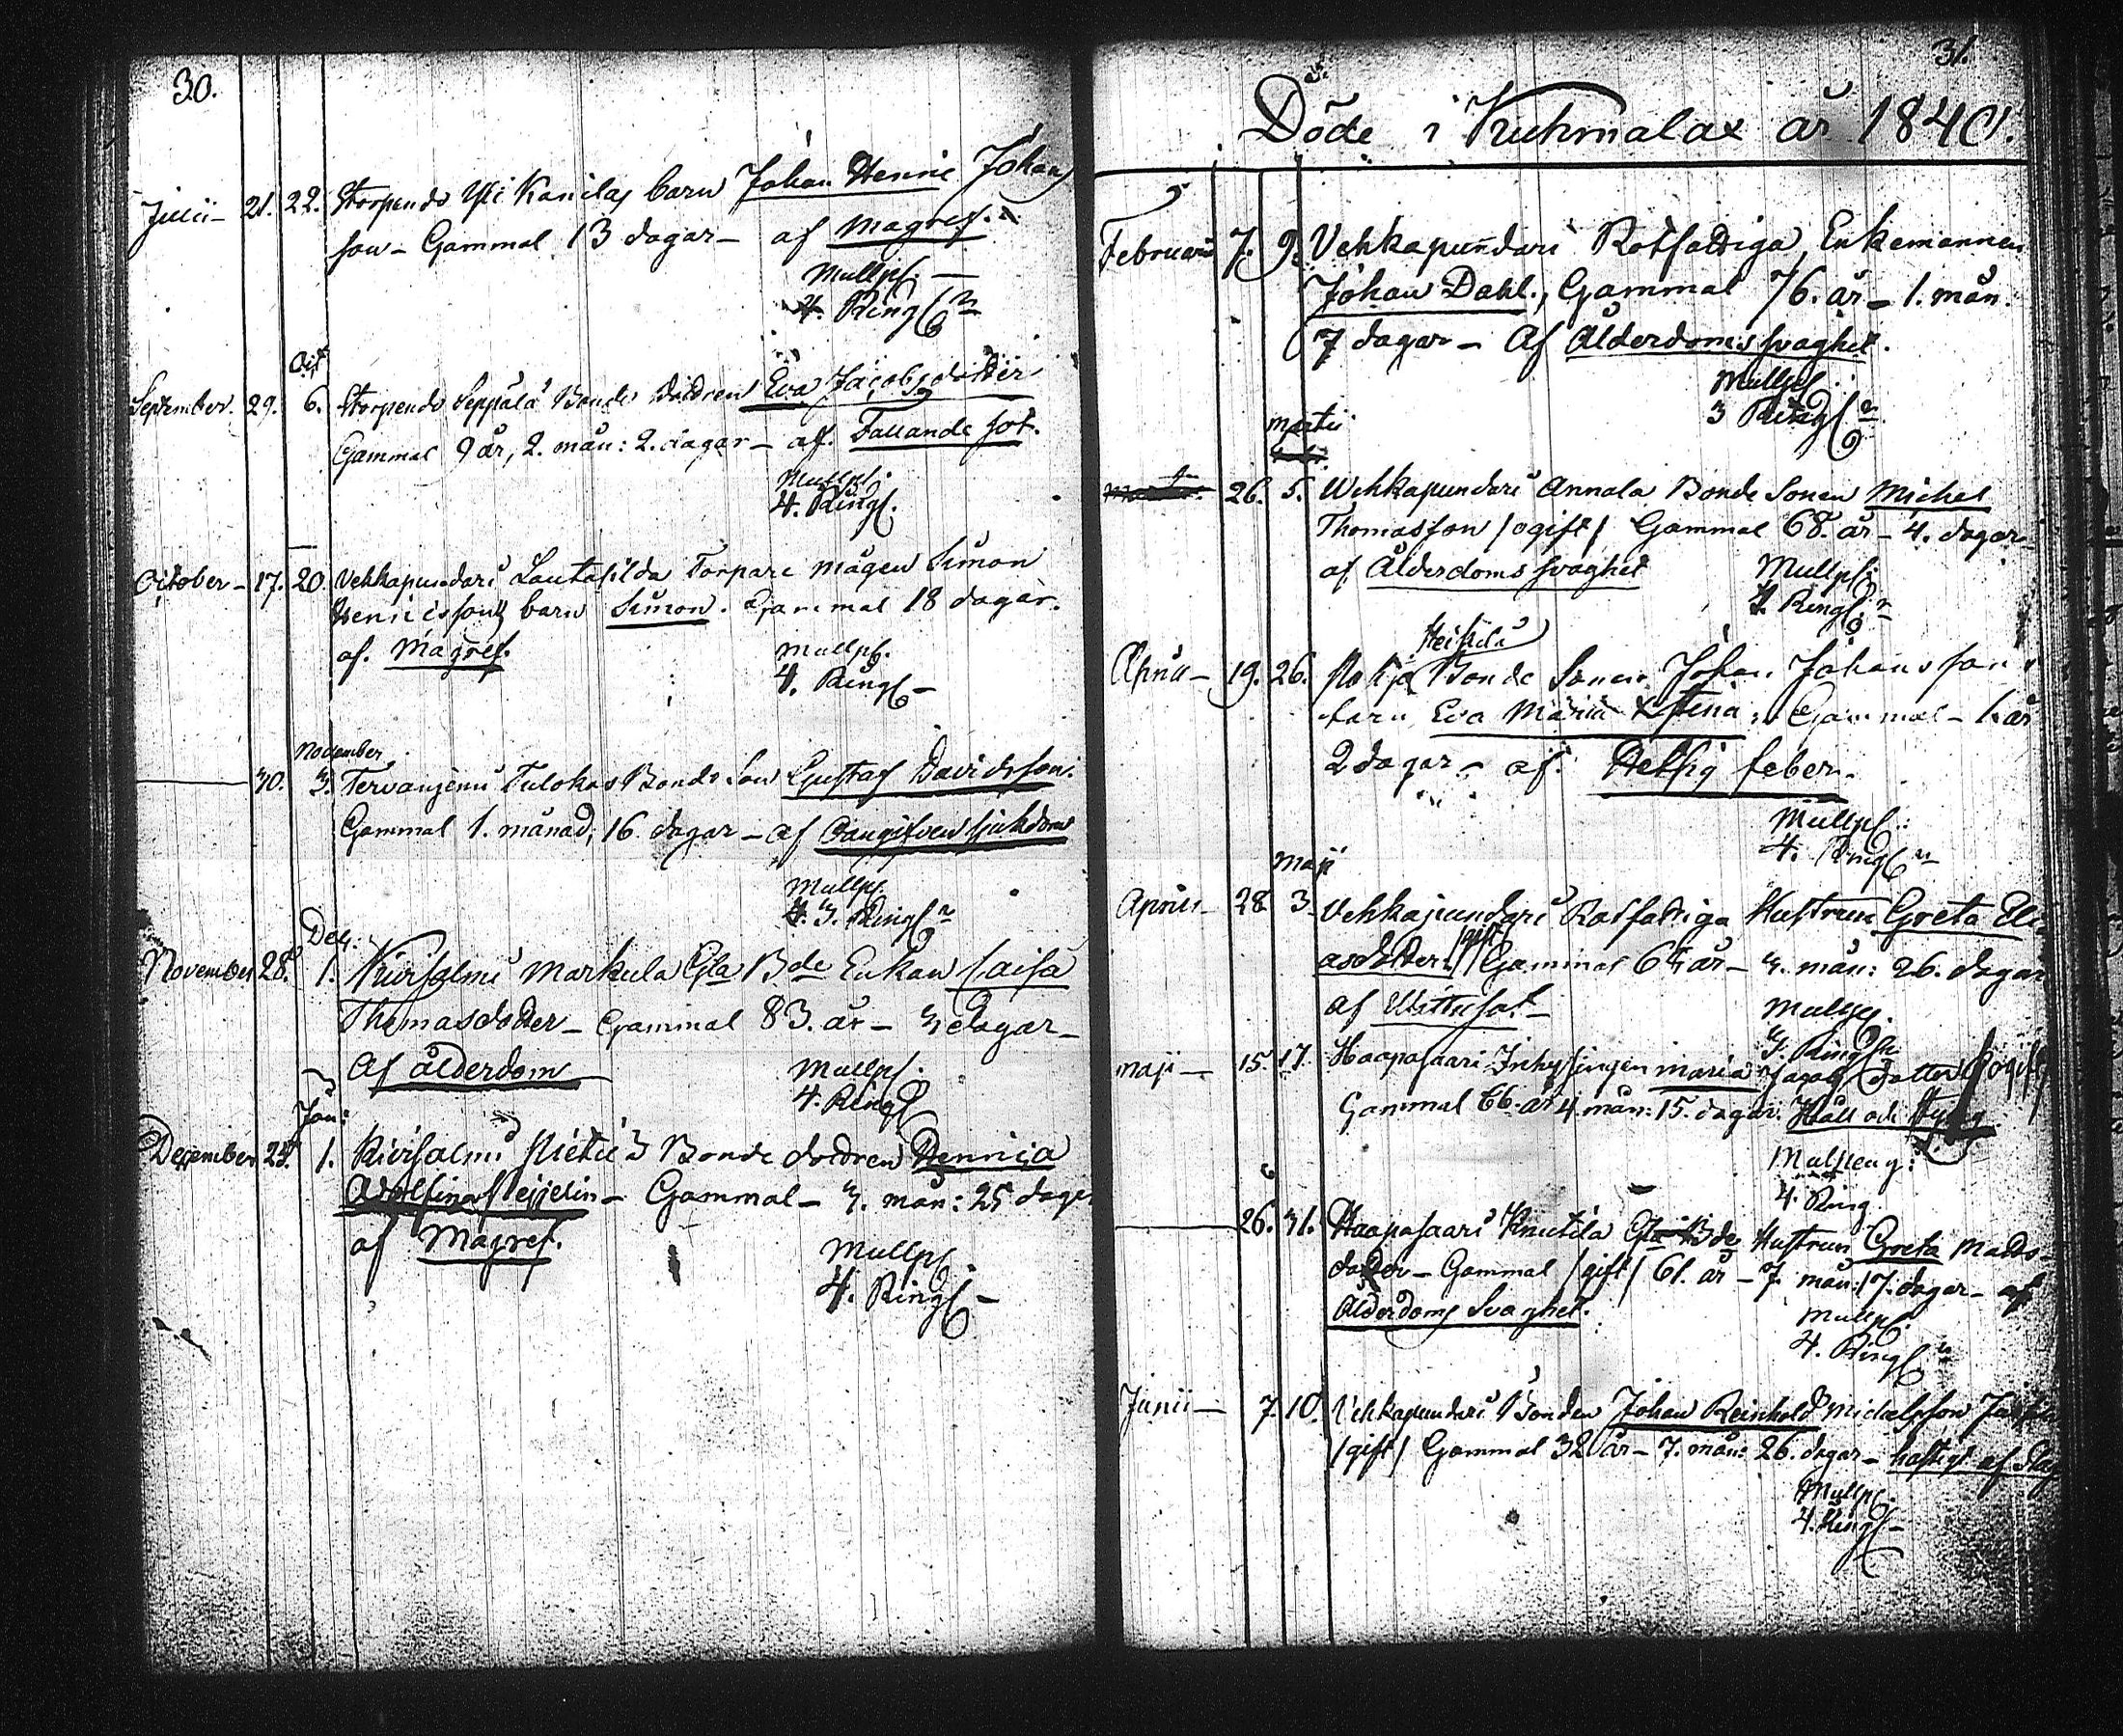 30.
Julii – 21. 22. Storpendo Yli Kanilas barn Johan Henric Johans
son – Gammal 13 dagar – af Magref.
Mullpf. –
4. Ring
Oct
September. 29. 6. Storpendo Seppälä Bonde dottren Eva Jacobsdotter
Gammal 9 år, 2. mån: 2. dagar – af. Fallande sot.
Mullpf.
4. Ring
October – 17. 20. Vehkapundari Torpare mågen Simon
Henricssons barn Simon. Gammal 18 dagar.
af. Magref.
Mullpf.
4. Ring –
November
30. 3. Tervaniemi Tulokas Bonde Son Gustaf Davidsson.
Gammal 1. månad, 16. dagar – af Oangifven sjukdom
Mullpf.
3. Ring
Dec:
November 28. 1. Kirisalmi Markula Gla Bde Enkan Caisa
Thomasdotter – Gammal 83. år – 3 dagar –
Af ålderdom –
Mullpf.
4. Ring
Jan:
December 25. 1. Kirisalmi Bonde dottren Henrica
Adolfina – Gammal – 3. mån: 25 dagar
af Magref.
Mullpf.
4. Ring –
31.
Döde i Kuhmalax år 1840.
Februarii 7. 9. Vehkapundari Rotfattiga Enkemannen
Johan Dahl., Gammal 76. år – 1. mån.
7 dagar – Af Ålderdoms svaghet.
Mullpf.
3 Ring
martii
26. 5. Wehkapundari Annala Bonde Sonen Michel
Thomasson /ogift/ Gammal 68. år – 4. dagar –
af Ålderdoms svaghet
Mullpf.
4. Ring
Heikilä
April – 19. 26. Pohja Bonde Sonen Johan Johanssons
barn Eva Maria Xstina, Gammal – 1. år
2 dagar – af. Hettsig feber.
Mullpf.
4. Ring
maji
April – 28 3. Vehkapundari Rotfattiga Hustrun Greta Eli-
asdotter /gift/ Gammal 63 år – 3. mån: 26. dagar
af –
Mullpf.
3. Ring
maji – 15. 17. Haapasaari Inhysingen maria Jacobs Dotter /ogift/
Gammal 66. år 4. mån: 15. dagar. Håll och Styng
Mullpeng:
4. Ring
26. 31. Haapasaari Knutila Gla Bde Hustrun Greta Matts-
dotter – Gammal /gift/ 61. år – 7. mån: 17. dagar – af
Ålderdoms Svaghet.
Mullpf.
4. Ring
Junii – 7. 10. Vehkapundari Bonden Johan Reinhold Michelsson
/gift/ Gammal 32 år – 7. mån: 26. dagar – häftigt af Slag
Mullpf.
4. Ring –